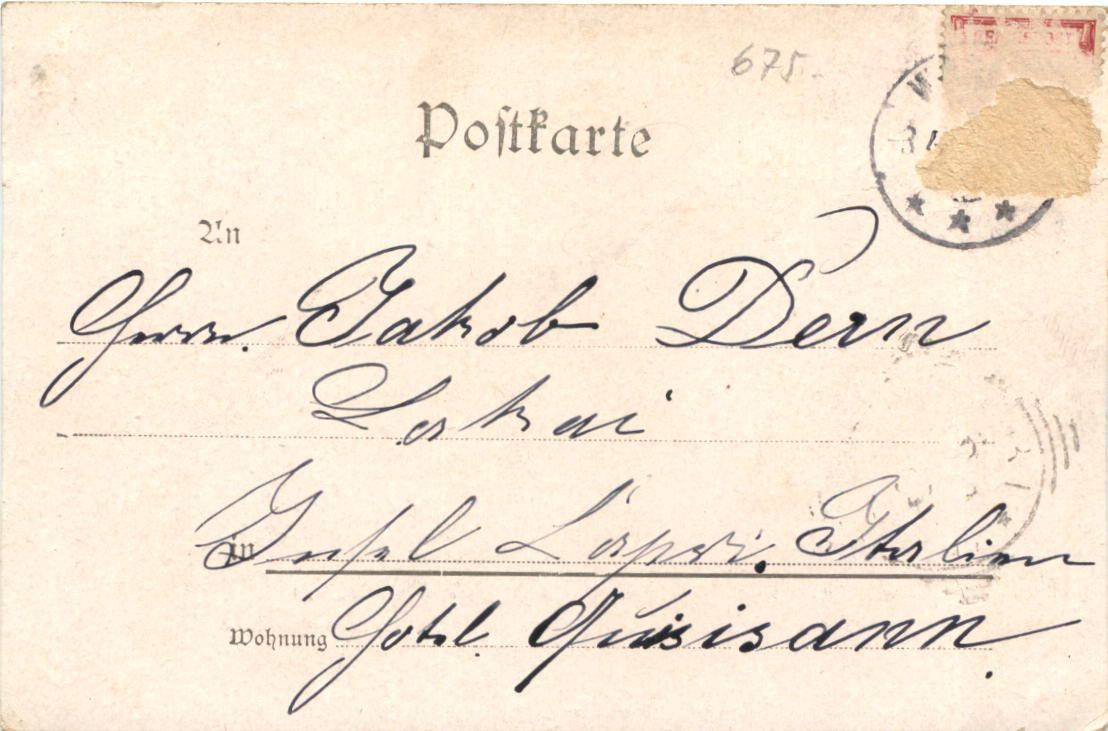 675.
REICHSPOST
Postkarte
3 4
An
Herrn. Jakob Dern
Lakai
in Insel Capri. Italien
Wohnung Hotel. Quisisann.